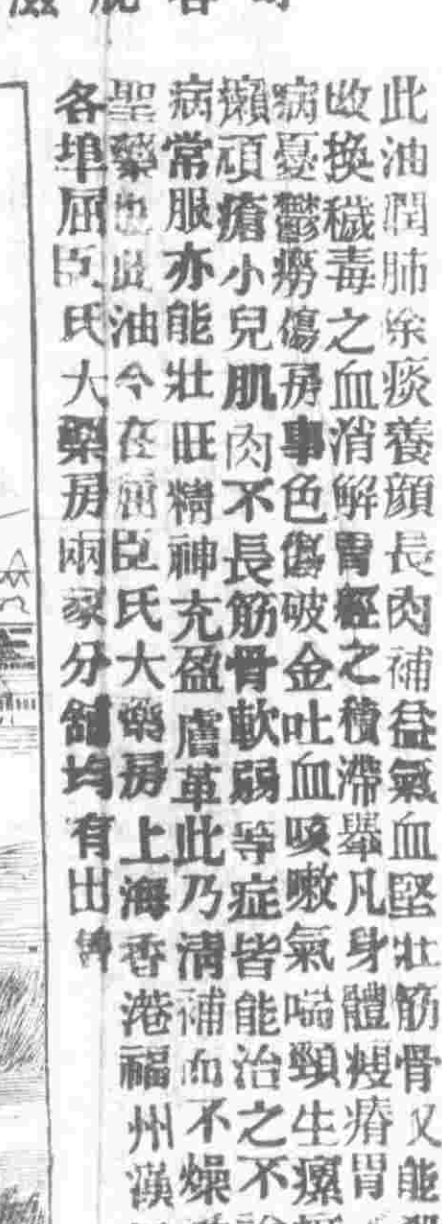 此油潤肺除痰養顔長肉補益氣血堅壯筋骨又能
改換穢毒之血消解胃經之積滯舉凡身體瘦瘠胃
病憂鬱癆傷房事色傷破金吐血咳嗽氣喘頸生瘰
癩頑瘡小兒肌肉不長筋骨軟弱等症皆能治之不
病常服亦能壯旺精神充盈膚革此乃清補而不燥
聖藥也此油今在屈臣氏大藥房上海香港福州漢
各埠屈臣氏大藥房兩家分舖均有出售